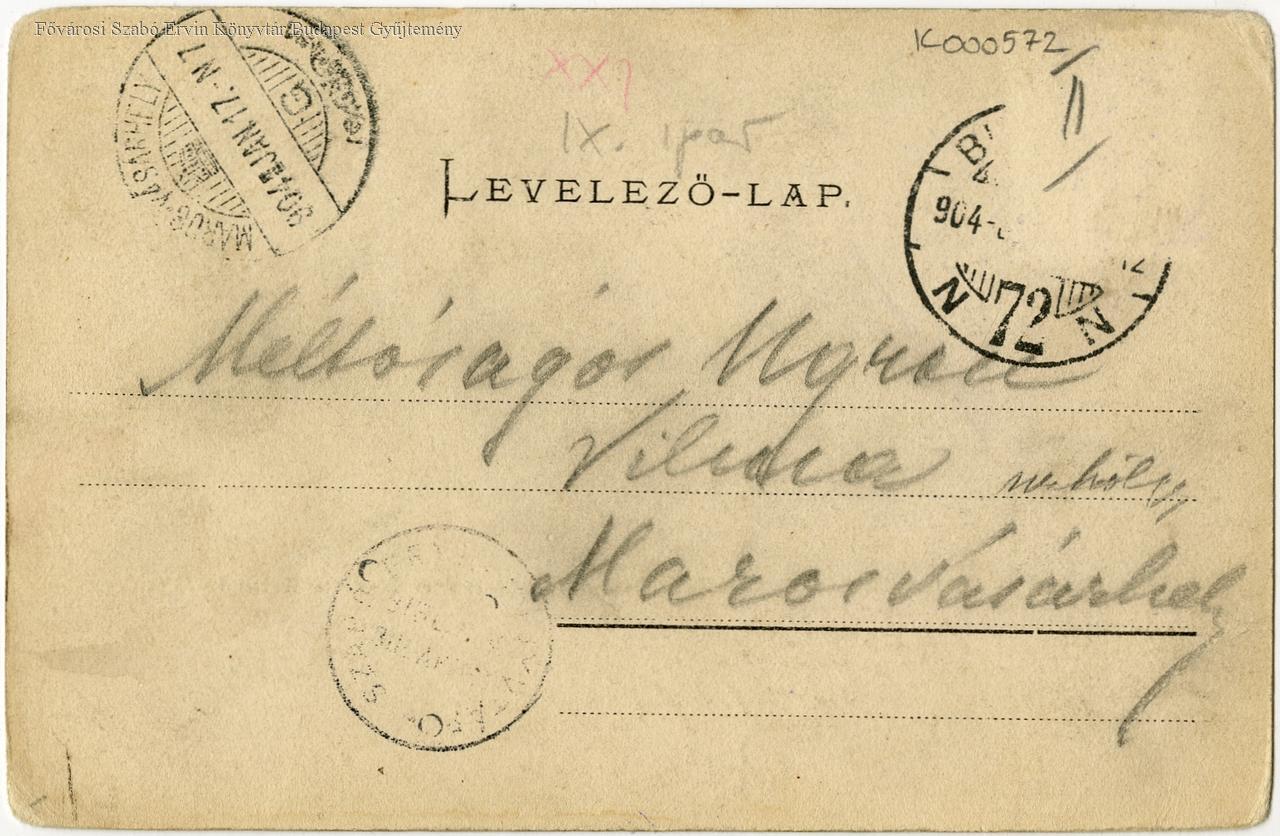 Fővárosi Szabó Ervin Könyvtár Budapest Gyűjtemény
K000572
II
XXI
IX. ipar
LEVELEZŐ-LAP.
MAROS-VÁSÁRHELY
904 JAN 17. N7
G
904
72
N N
Méltóságos Ugron
Vilma
Marosvásárhely